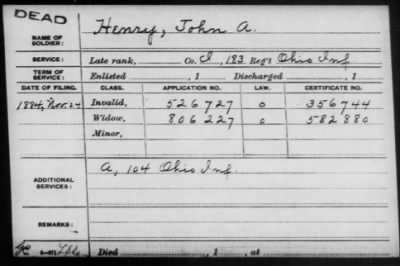 DEAD
NAME OF SOLDIER: Henry, John A.
SERVICE: Late rank, Co. I, 183 Reg't Ohio Inf
TERM OF SERVICE: Enlisted , 1 Discharged , 1
DATE OF FILING. CLASS. APPLICATION NO. LAW. CERTIFICATE NO.
1884, Nov. 24 Invalid, 526727 0 356744
Widow, 806227 0 582880
Minor,
ADDITIONAL SERVICES: A, 104 Ohio Inf.
REMARKS:
Died , 1 , at